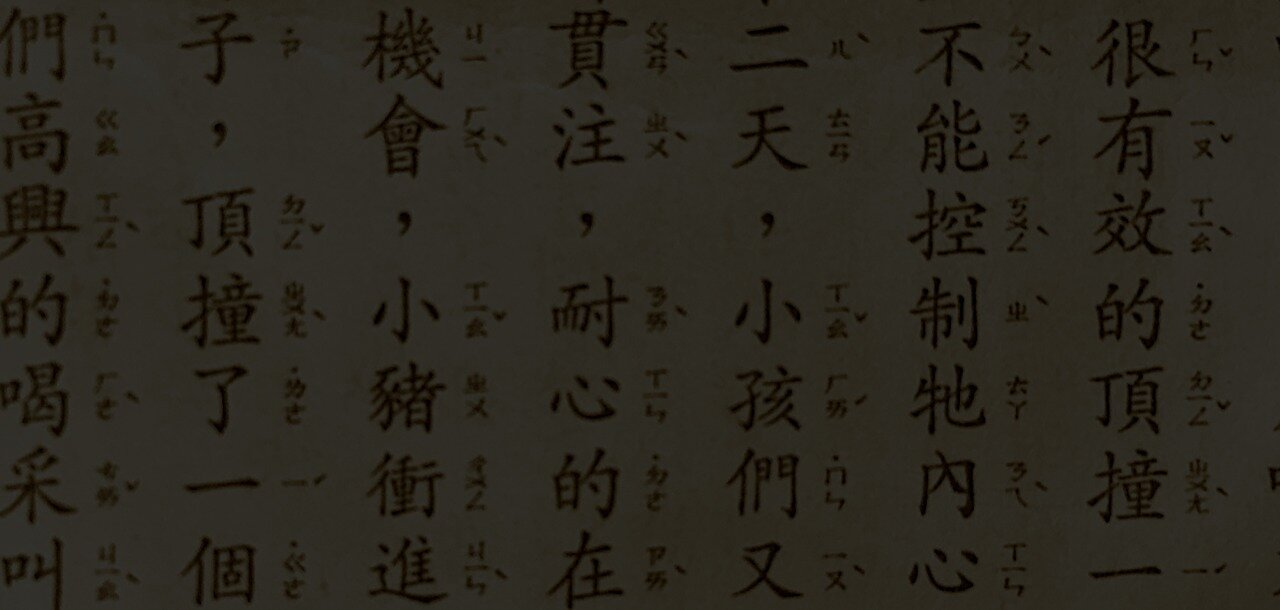 很有效的頂撞一
不能控制牠內心
二天，小孩們又
貫注，耐心的在
機會，小豬衝進
子，頂撞了一個
們高興的喝采叫